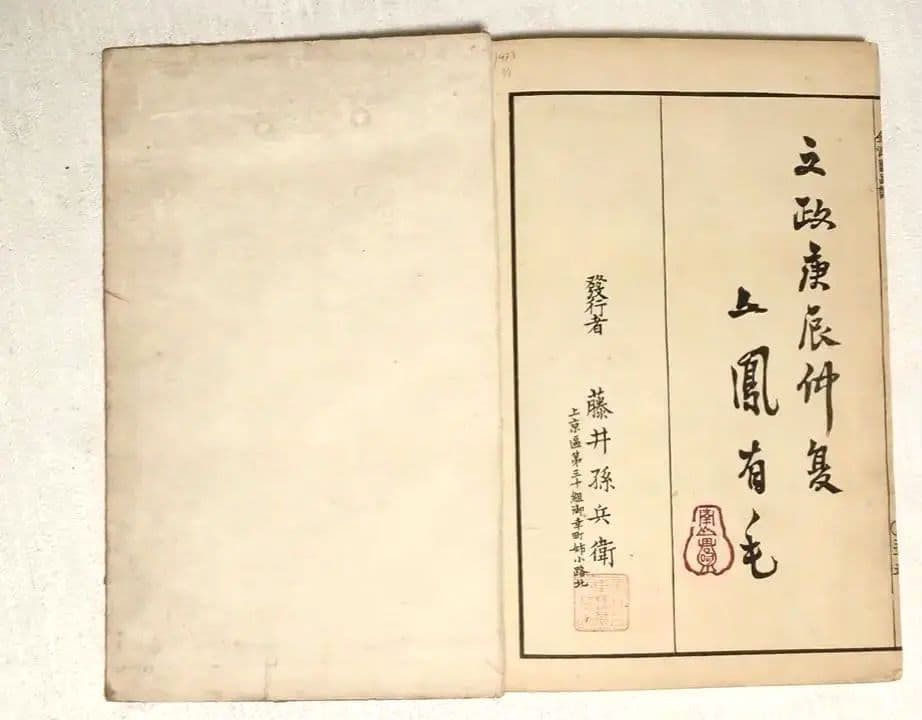 文政庚辰仲夏
文鳳有毛
發行者 藤井孫兵衛
上京區第三十組御幸町姉小路北